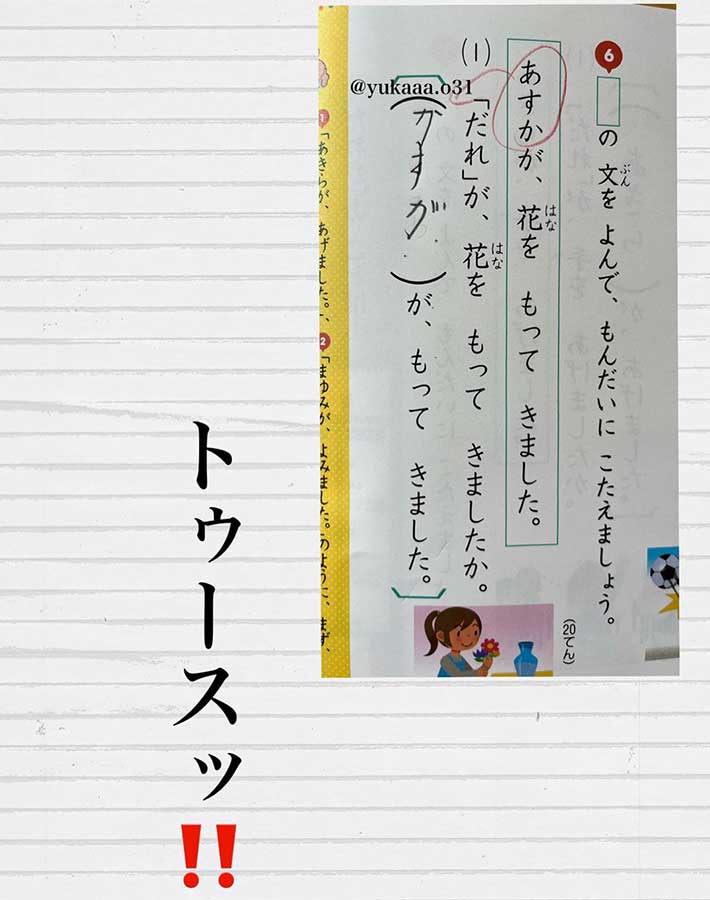 6 の 文を よんで、もんだいに こたえましょう。
ぶん
(20てん)
あすかが、花を もって きました。
はな
(1)「だれ」が、花を もって きましたか。
はな
(かすが)が、もって きました。
@yukaaa.o31
1 「あきらが、あげました。」、
2 「まゆみが、よみました。のように、まず、
トゥースッ‼